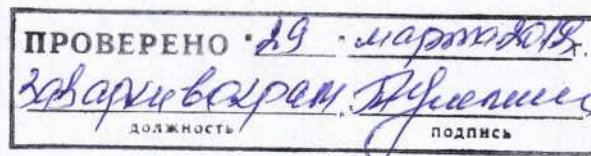 ПРОВЕРЕНО "29" марта 2018г.
Зав архивохран.
должность подпись